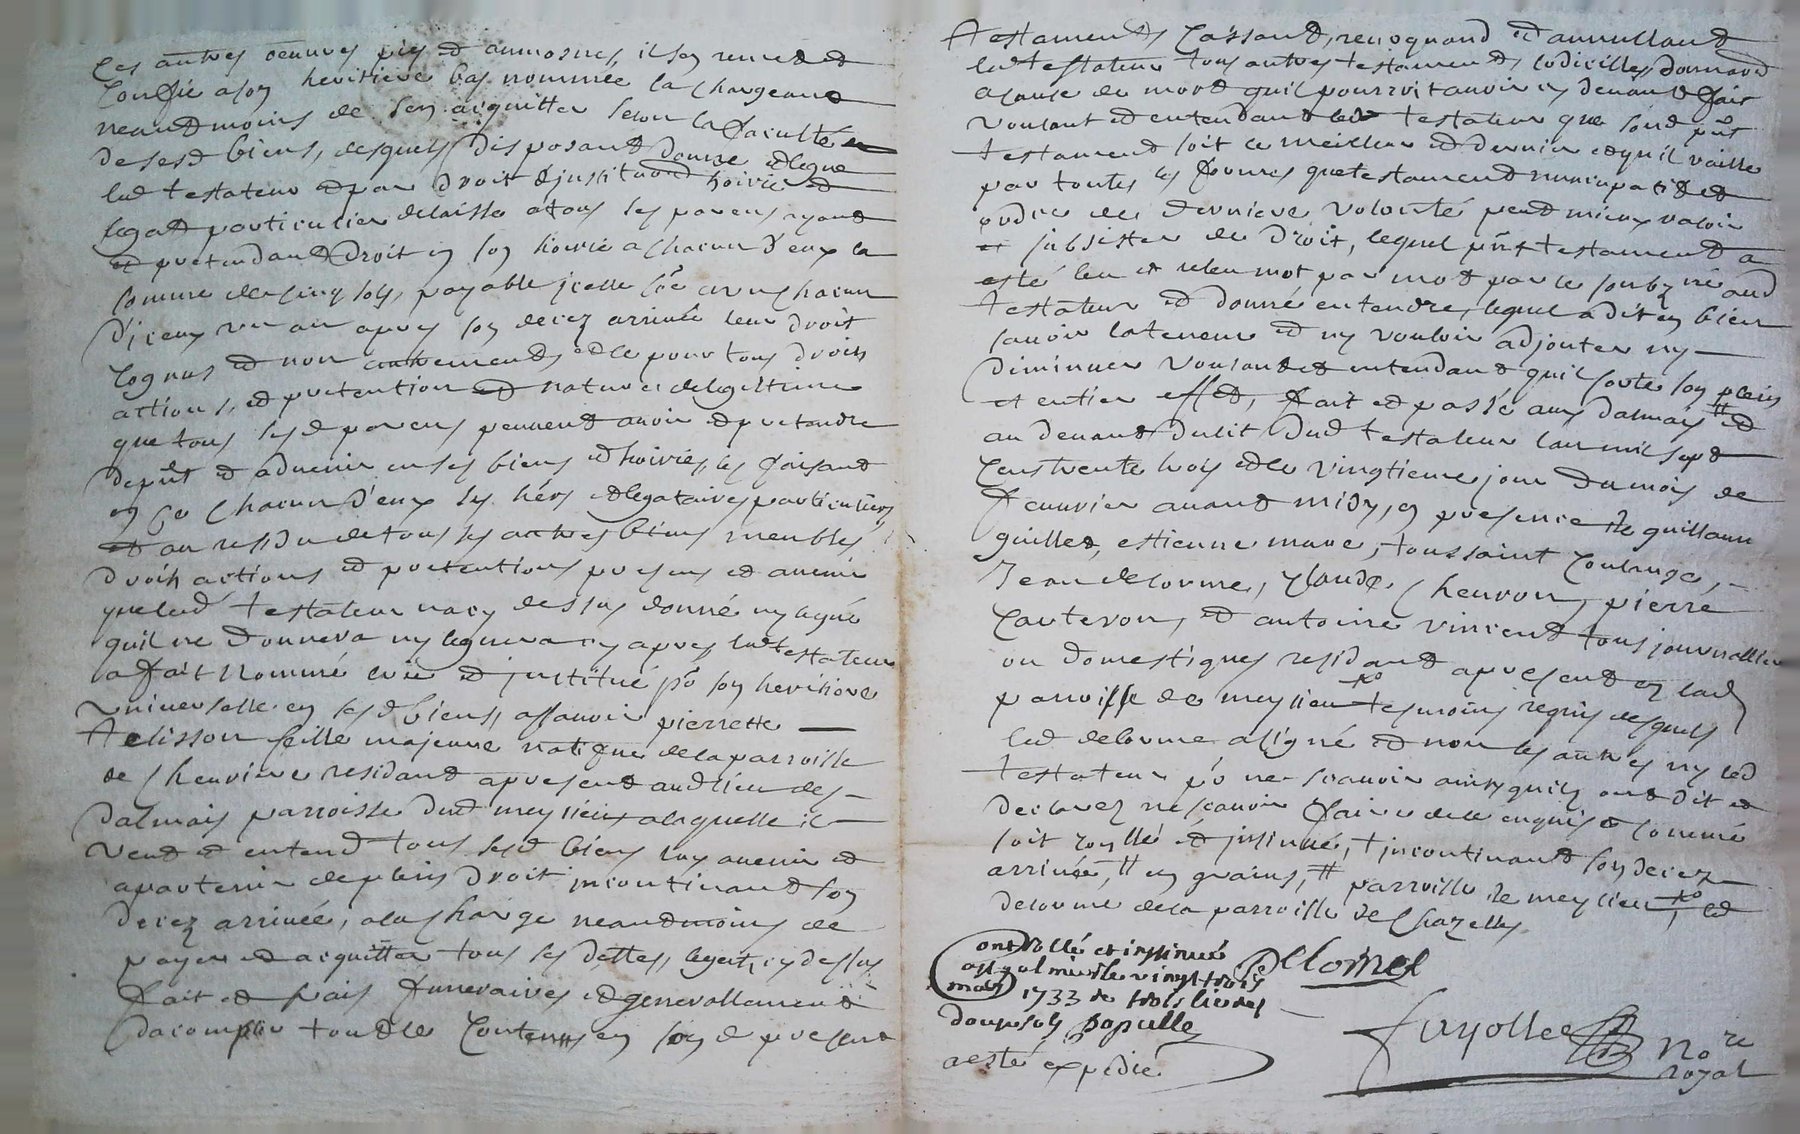 Les autres oeuvres pies et aumosnes, il sen remet et
confie a son heritiere bas nommée la chargeant
neandmoins de sen aquitter selon la faculté
de sesd biens, desquels disposant donne et legue
led testateur et par droit d'institution hoirie et
legat particulier delaisse a tous ses parens ayant
et pretendant droit en son hoirie a chacun d'eux la
somme de cinq sols, payable icelle so͞e a un chacun
d'iceux un an apres son decez arrivée leur droit
cognus et non autrement, et ce pour tous droits
actions, et pretention et nature de legitime
que tous sesd parens peuvent avoir et pretendre
de pn͞t et advenir en ses biens et hoiries, les faisant
en ce chacun d'eux ses hérs et legataires particuliers
et au residu de tous ses autres biens meubles
droits actions et pretentions presens et avenir
que led testateur na cy dessus donné ny legué
quil ne donnera ny leguera cy apres led testateur
a fait nommé crée et institué po son heritiere
universelle en sesd biens, assavoir pierrette
telisson feille majeure natifve de la parroisse
de chenviere residant apresent aud lieu des
dalmais parroisse dud meylieu a laquelle il
veut et entend tous sesd biens luy avenir et
apartenir de plein droit incontinant son
decez arrivée, a la charge neandmoins de
payer et aquitter tous ses dettes, legat, cy dessus
fait et frais funeraires et generallement
dacomplir tout le contenu en son d present
testament, cassant, revoquand et annullant
led testateur tous autres testaments codicilles, donnaōn
a cause de mort quil pourroit avoir cy devant fait
voulant et entendant led testateur que soud pn͞t
testament soit le meilleur et dernier et quil vaille
par toutes les formes que testament nuncupatif et
ordre de derniere volonté peut mieux valoir
et subsister de droit, lequel pn͞t testament a
esté leu et releu mot par mot par le soubzné aud
testateur et donné entendre, lequel a dit en bien
savoir la teneur et ny vouloir adjouter ny
diminuer voulant et entendant quil sorte son plein
et entier effet, fait et passé aux dalmais # et
au devant du lit dud testateur lan mil sept
cens trente trois et le vingtieme jour du mois de
fevrier avant midy, en presence de guillaume
guillet, estienne mave, toussaint coulange,
Jean delorme, claude chevron, pierre
cauteron, et antoine vincent tous journallier
ou domestiques residant apresent en lad
parroisse de meylieu tesmoins requis desquels
led delorme a signé et non les autres ny led
testateur po ne scavoir ainsy quilz ont dit et
declarez ne scavoir faire de ce enquis et sommé
soit roollé et insinué, + incontinant son decez
arrivée, # en grains, # parroisse de meylieu, led
delorme de la parroisse de Chazelles
Delorme
controllé et insinué
a st galmier le vingt trois
mars 1733 re trois livres
douze sols populle
a esté expedié
fayolle No re
royal